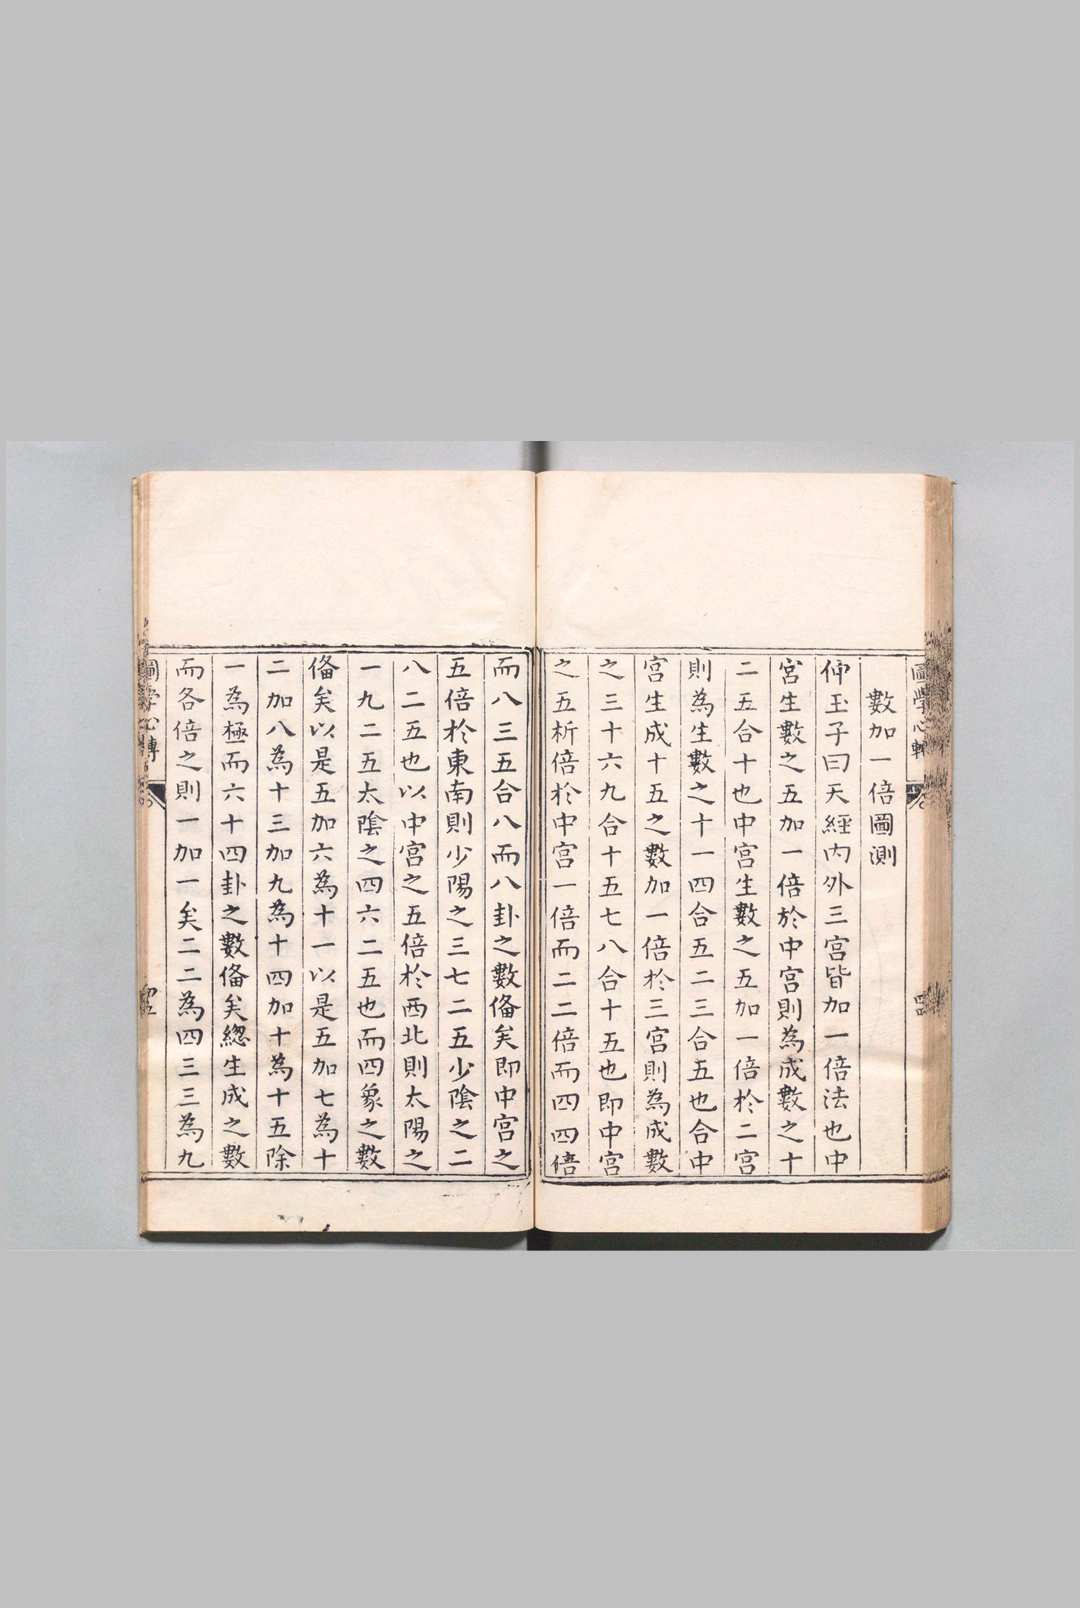 數加一倍圖測
仲玉子曰天經內外三宮皆加一倍法也中
宮生數之五加一倍於中宮則為成數之十
二五合十也中宮生數之五加一倍於二宮
則為生數之十一四合五二三合五也合中
宮生成十五之數加一倍於三宮則為成數
之三十六九合十五七八合十五也即中宮
之五析倍於中宮一倍而二二倍而四四倍
而八三五合八而八卦之數俻矣即中宮之
五倍於東南則少陽之三七二五少陰之二
八二五也以中宮之五倍於西北則太陽之
一九二五太陰之四六二五也而四象之數
俻矣以是五加六為十一以是五加七為十
二加八為十三加九為十四加十為十五除
一為極而六十四卦之數俻矣緫生成之數
而各倍之則一加一矣二二為四三三為九
圖學心